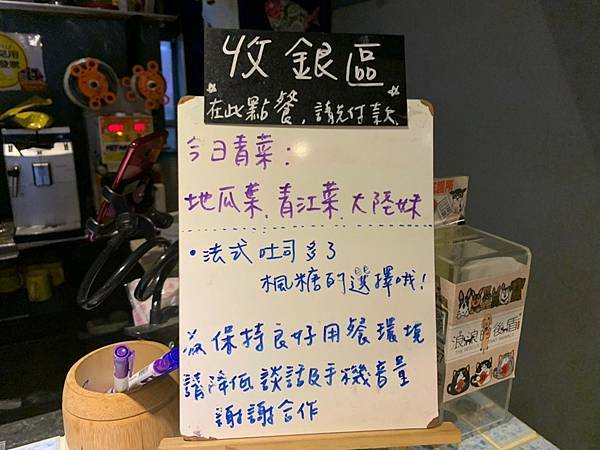 收銀區
在此點餐，請先付款
今日青菜：
地瓜葉、青江菜、大陸妹
•法式吐司多了
楓糖的選擇哦！
為保持良好用餐環境
請降低談話及手機音量
謝謝合作
浪浪的後盾